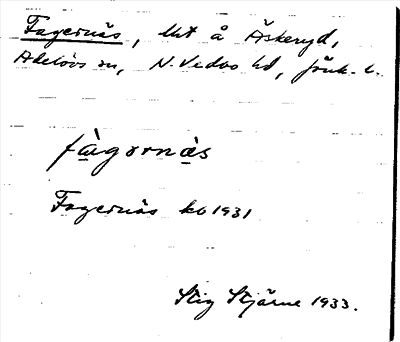 Fagernäs, lht å Äskeryd,
Askeryds sn, N. Vedbo hd, Jönk. l.
fàgərnä̀s
Fagernäs kb 1931
Stig Stjärne 1933.